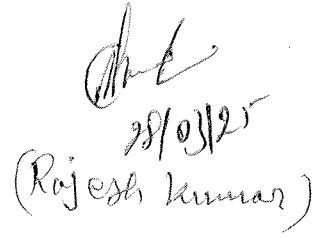 28/03/25
(Rajesh Kumar)